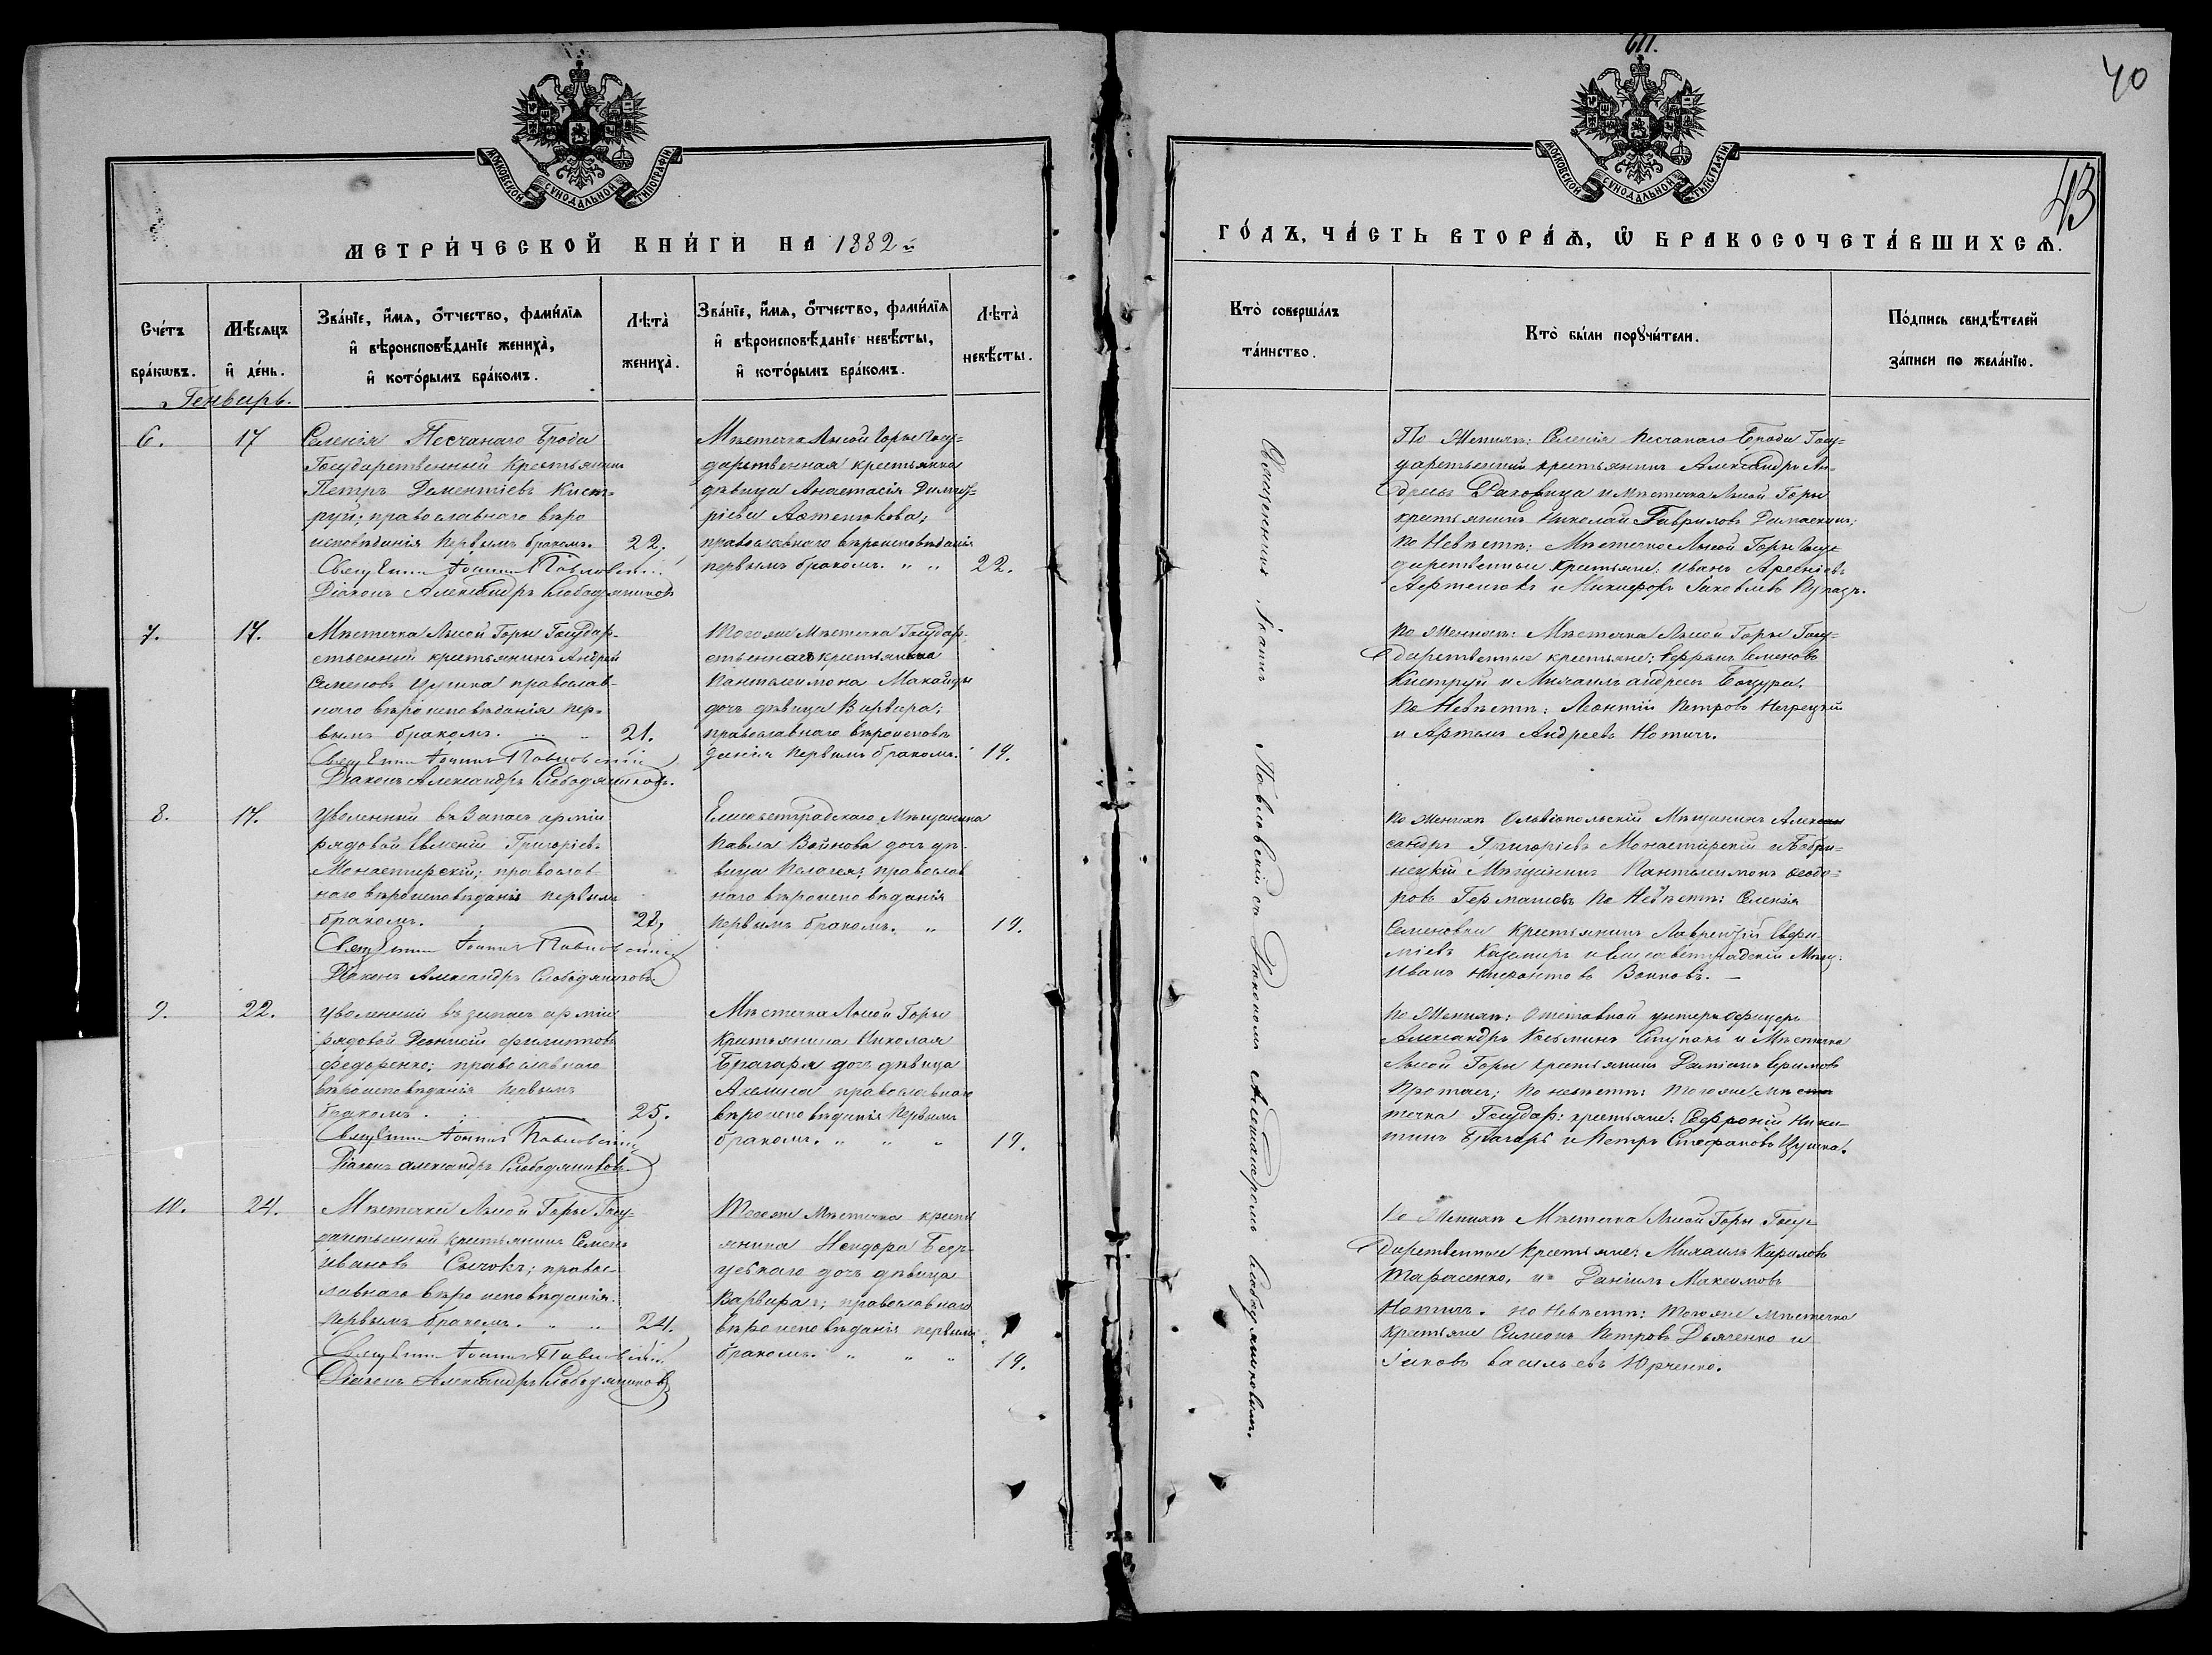 МОСКОВСКОЙ СѴНОДАЛЬНОЙ ТИПОГРАФІИ
МЕТРИ́ЧЕСКОЙ КНИ́ГИ НА 1882й
Сче́тъ бра́кωвъ.
Мѣ́сяцъ и҆ де́нь.
Зва́нїе, и҆́мя, ѻ҆́тчество, фами́лїя
и҆ вѣроисповѣ́данїе жениха̀,
и҆ кото́рымъ бра́комъ.
Лѣта̀ жениха̀.
Зва́нїе, и҆́мя, ѻ҆́тчество, фами́лїя
и҆ вѣроисповѣ́данїе невѣ́сты,
и҆ кото́рымъ бра́комъ.
Лѣта̀ невѣ́сты.
Генварь.
6. 17
Селенія Песчанаго Брода
Государственный Крестьянинъ
Петръ Дементіевъ Кист-
руй; православнаго вѣро
исповѣданія первымъ бракомъ. 22.
Священникъ Іоаннъ Павловскій
Діаконъ Александръ Слободяниковъ
Мѣстечка Лысой Горы Госу-
дарственная крестьянка
дѣвица Анастасія Димит-
ріева Автенюкова;
православнаго вѣроисповѣданія
первымъ бракомъ. " " 22.
7. 17.
Мѣстечка Лысой Горы Государ-
ственный крестьянинъ Андрей
Семеновъ Цушка православ-
наго вѣроисповѣданія пер-
вымъ бракомъ. " " 21.
Священникъ Іоаннъ Павловскій
Діаконъ Александръ Слободяниковъ.
Тогоже Мѣстечка Государ-
ственнаго крестьянина
Пантелеимона Макайды
дочь дѣвица Варвара;
православнаго вѣроисповѣ
данія первымъ бракомъ. 19.
8. 17.
Уволенный въ Запасъ арміи
рядовой Евменій Григоріевъ
Монастирскій; православ-
наго вѣроисповѣданія первымъ
бракомъ.
Священникъ Іоаннъ Павловскій
Діаконъ Александръ Слободяниковъ
Елисаветградскаго Мѣщанина
Павла Войнова дочь дѣ-
вица Пелагея; православ
наго вѣроисповѣданія
первымъ бракомъ. " 19.
9. 22.
Уволенный въ запасъ арміи
рядовой Деонисій Филиповъ
Федоренко; православнаго
вѣроисповѣданія первымъ
бракомъ. 25.
Священникъ Іоаннъ Павловскій
Діаконъ Александръ Слободяниковъ
Мѣстечка Лысой Горы
крестьянина Николая
Брагаря дочь дѣвица
Акилина православнаго
вѣроисповѣданія первымъ
бракомъ. " " " 19.
10. 24.
Мѣстечка Лысой Горы Госу-
дарственный крестьянинъ Семенъ
Ивановъ Сычокъ; право-
славнаго вѣроисповѣданія.
первымъ бракомъ. " " 24.
Священникъ Іоаннъ Павловскій
Діаконъ Александръ Слободяниковъ
Тогоже Мѣстечка кресть
янина
дочь дѣвица
Варвара; православнаго
вѣроисповѣданія первымъ
бракомъ. " " " 19.
40
43
МОСКОВСКОЙ СѴНОДАЛЬНОЙ ТИПОГРАФІИ
ГО́ДЪ, ЧА́СТЬ ВТОРА́Я, Ѡ҆ БРАКОСОЧЕТА́ВШИХСЯ.
Кто̀ соверша́лъ та́инство.
Кто̀ бы́ли порꙋчи́тели.
По́дпись свидѣ́телей
за́писи по жела́нїю.
Священникъ Іоаннъ Павловскій съ Діакономъ Александромъ Слободяниковымъ.
По Женихѣ: Селенія Песчанаго Брода Госу-
дарственный крестьянинъ Александръ Ан-
дреевъ Раковица и мѣстечка Лысой Горы
крестьянинъ Николай Гавриловъ
По Невѣстѣ: Мѣстечка Лысой Горы Госу-
дарственные крестьяне: Иванъ Арсеніевъ
Автенюкъ и Никифоръ Іаковлевъ
По Женихѣ: Мѣстечка Лысой Горы Госу-
дарственные крестьяне: Семеновъ
Киструй и Михаилъ Андреевъ Боцура.
По Невѣстѣ: Леонтій Петровъ Негрецкій
и Артемъ Андреевъ Нотичъ.
По Женихѣ Ольвіопольскій Мѣщанинъ Алек
сандръ Григоріевъ Монастирскій и Бобри-
нецкій Мѣщанинъ Пантелимонъ Ѳеодо-
ровъ По Невѣстѣ: Селенія
Семеновки крестьянинъ Лаврентій Евфи-
міевъ Казимиръ и Елисаветградскій Мѣщ:
Иванъ Воиновъ. —
По Женихѣ: Отставной унтеръ Офицеръ
Александръ Косьминъ Ступакъ и Мѣстечка
Лысой Горы крестьянинъ Даміанъ
По невѣстѣ: тогоже мѣс
течка Государ: крестьяне: Софроній Ники-
тинъ Брагарь и Петръ Стефановъ Цушка.
По Женихѣ Мѣстечка Лысой Горы Госу-
дарственные крестьяне: Михаилъ Кириловъ
Тарасенко, и Даніилъ Максимовъ
Нотичъ. по Невѣстѣ: тогоже мѣстечка
крестьяне Симеонъ Петровъ Дьяченко и
Іаковъ Васильевъ Юрченко.